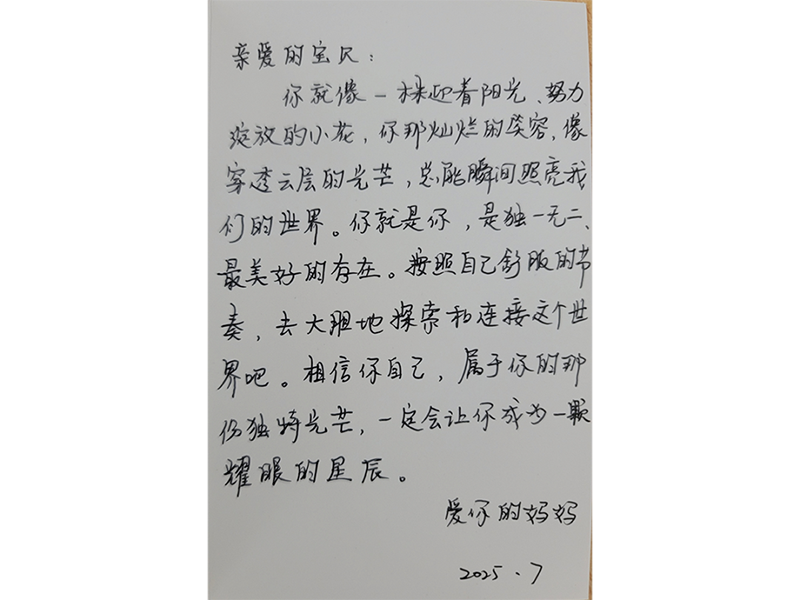 亲爱的宝贝：
你就像一株迎着阳光、努力
绽放的小花，你那灿烂的笑容，像
穿透云层的光芒，总能瞬间照亮我
们的世界。你就是你，是独一无二、
最美好的存在。按照自己舒服的节
奏，去大胆地探索和连接这个世
界吧。相信你自己，属于你的那
份独特光芒，一定会让你成为一颗
耀眼的星辰。
爱你的妈妈
2025.7